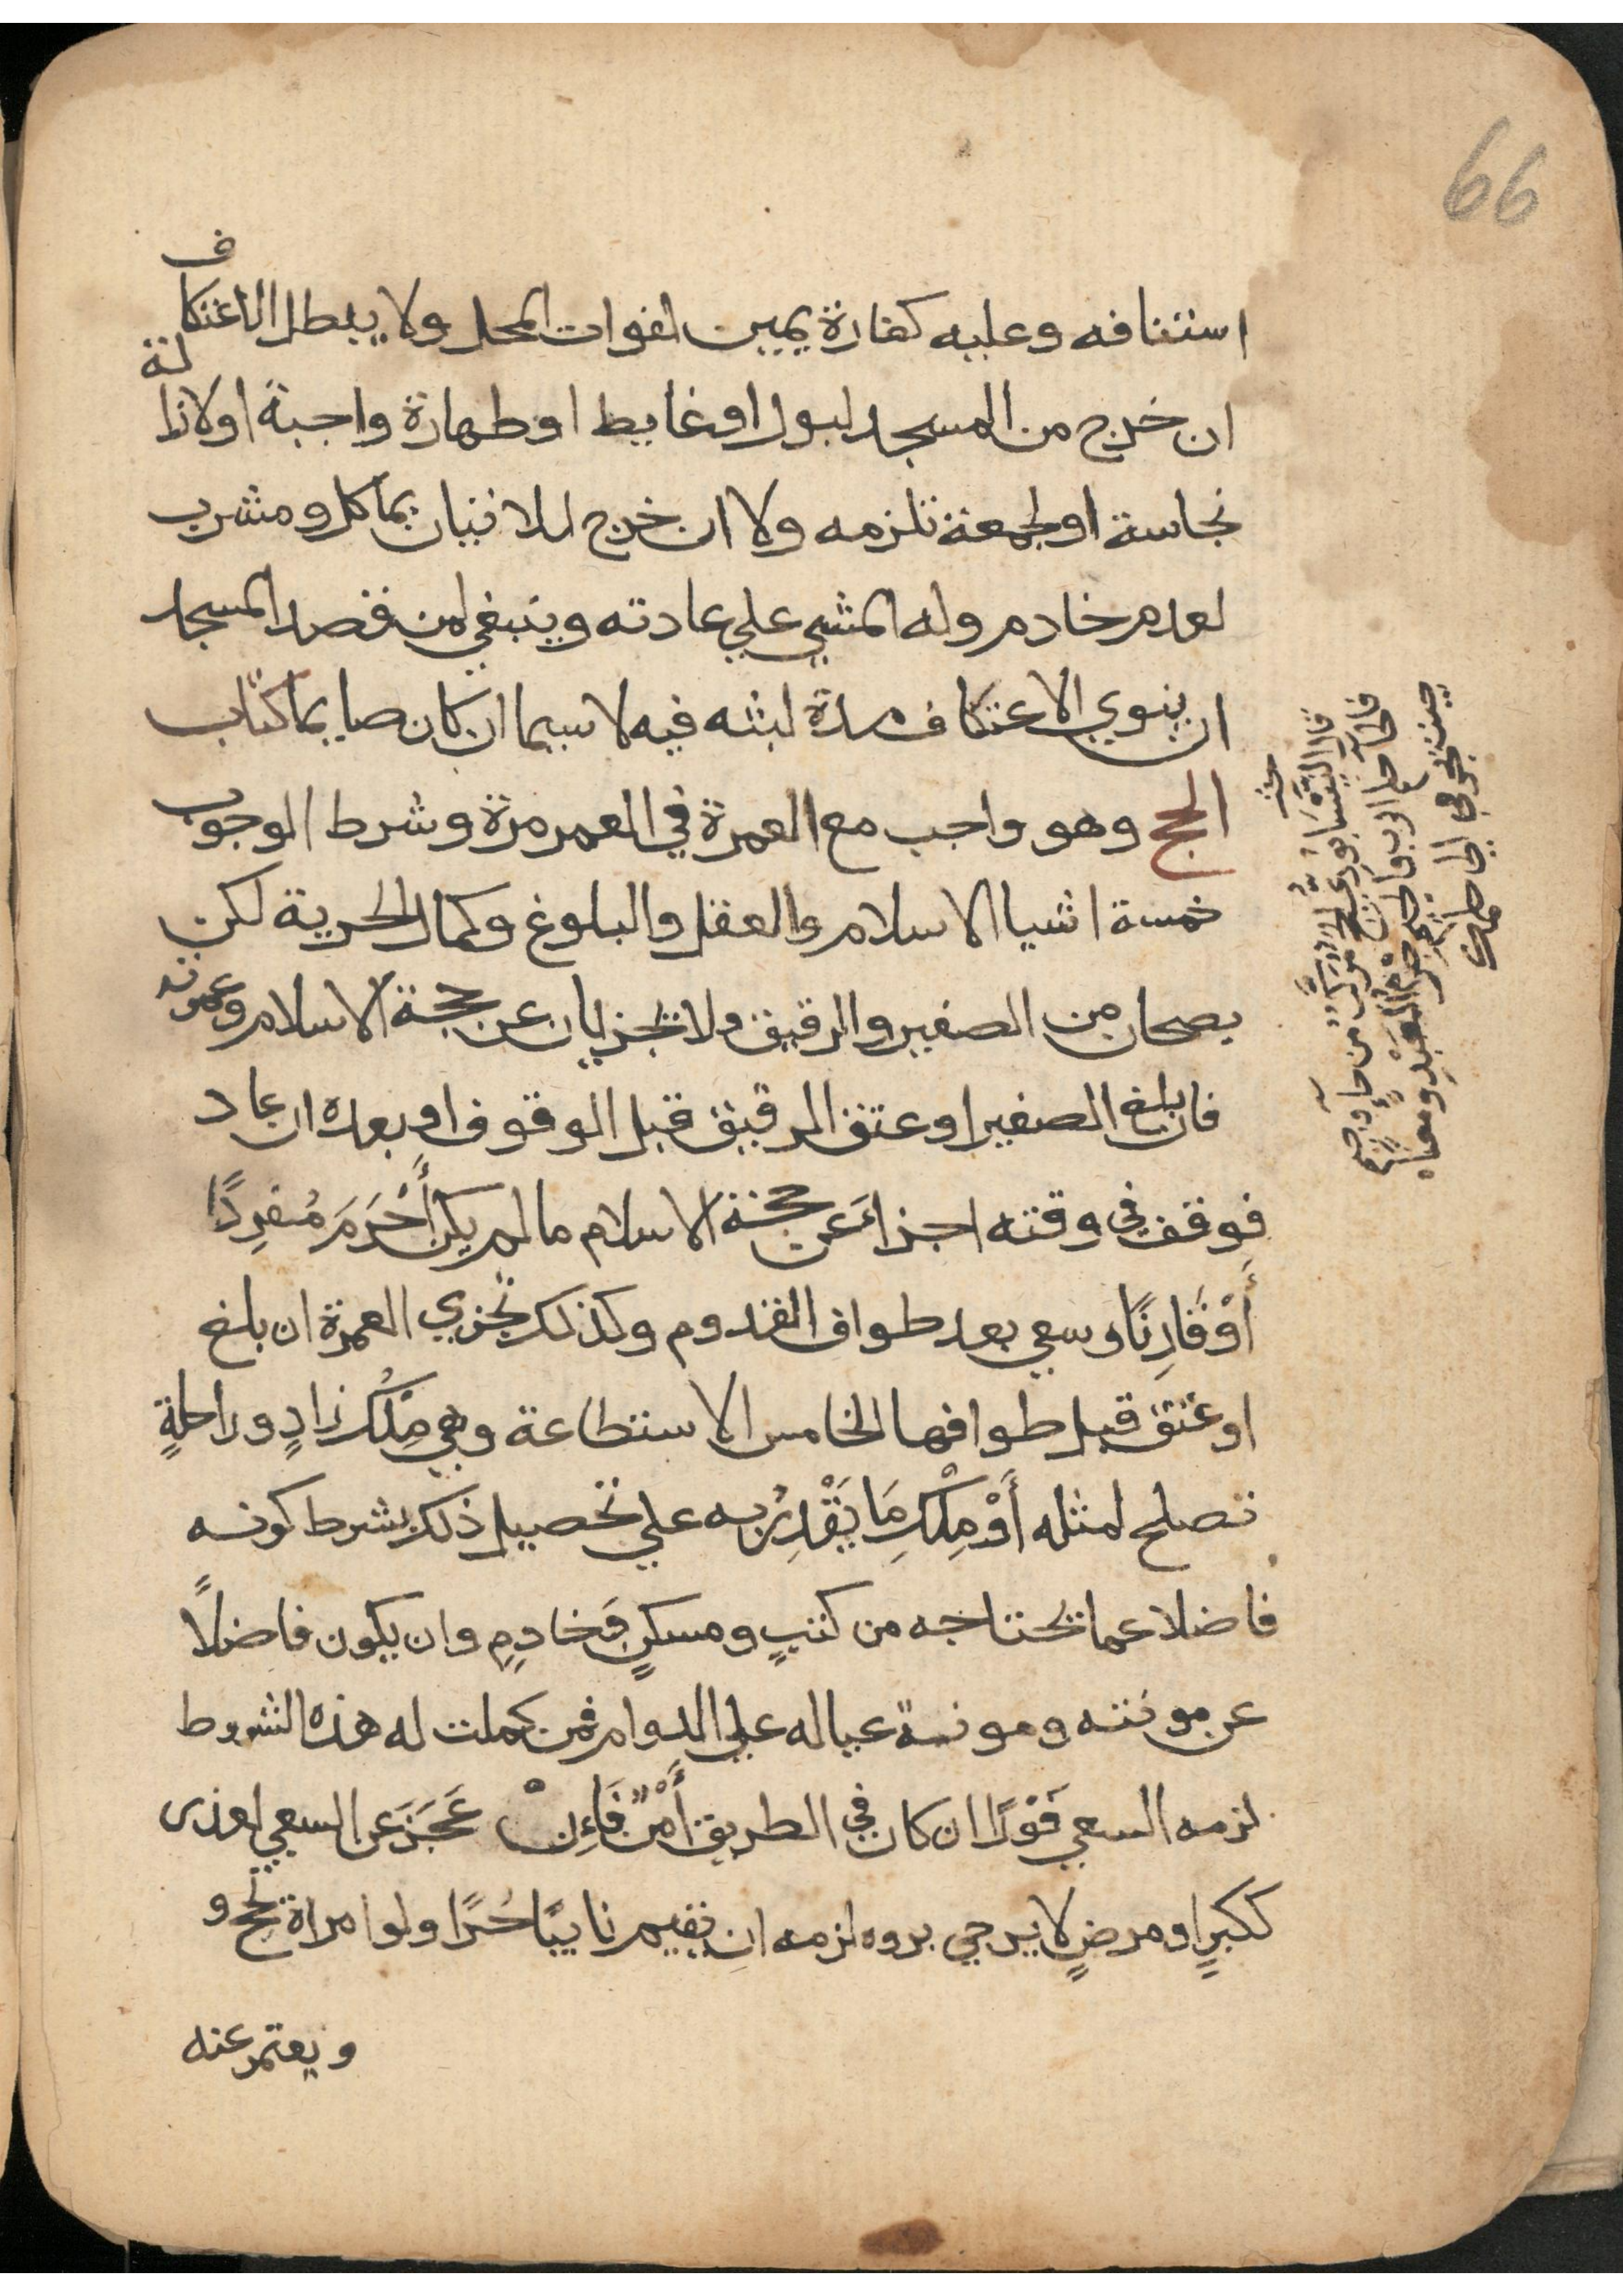 66
استنافه وعليه كفارة يمين لفوات المحل ولا يبطل الاعتكاف
ان خرج من المسجد لبول او غايط او طهارة واجبة او لازالة
نجاسة او لجمعة تلزمه ولا ان خرج للاتيان بماكل ومشرب
لعدم خادم وله المشي علي عادته وينبغي لمن قصد المسجد
ان ينوي الاعتكاف مدة لبثه فيه لا سيما ان كان صايما كتاب
الحج وهو واجب مع العمرة في العمر مرة وشرط الوجوب
خمسة اشيا الاسلام والعقل والبلوغ وكمال الحرية لكن
يصحان من الصغير والرقيق ولا تجزيان عن حجة الاسلام وعمرته
فان بلغ الصغير او عتق الرقيق قبل الوقوف او بعده ان عاد
فوقف في وقته اجزاءَ عن حجة الاسلام ما لم يكن أَحْرَمَ مُفرِدًا
أَوْ قَارِنًا وسعي بعد طواف القدوم وكذلك تجزي العمرة ان بلغ
او عتق قبل طوافها الخامس الاستطاعة وهي مِلْكُ زادٍ وراحلةٍ
تصلح لمثله أَوْ مِلْكِ مَا يَقْدِرُ به علي تحصيل ذلك بشرط كونه
فاضلا عما تحتاجه من كتبٍ ومسكنٍ وَخادِمٍ وان يكون فاضلًا
عن مونته ومونة عياله علي الدوام فمن كملت له هذه الشروط
لزمه السعي فَوْرًا ان كان في الطريق أَمْنٌ فَاءِنْ عَجَزَ عن السعي لعذر
ككبرٍ او مرضٍ لا يرجي بروه لزمه ان يقيم نايبًا حُرًا ولو امراة تحج و
ويعتمر عنه